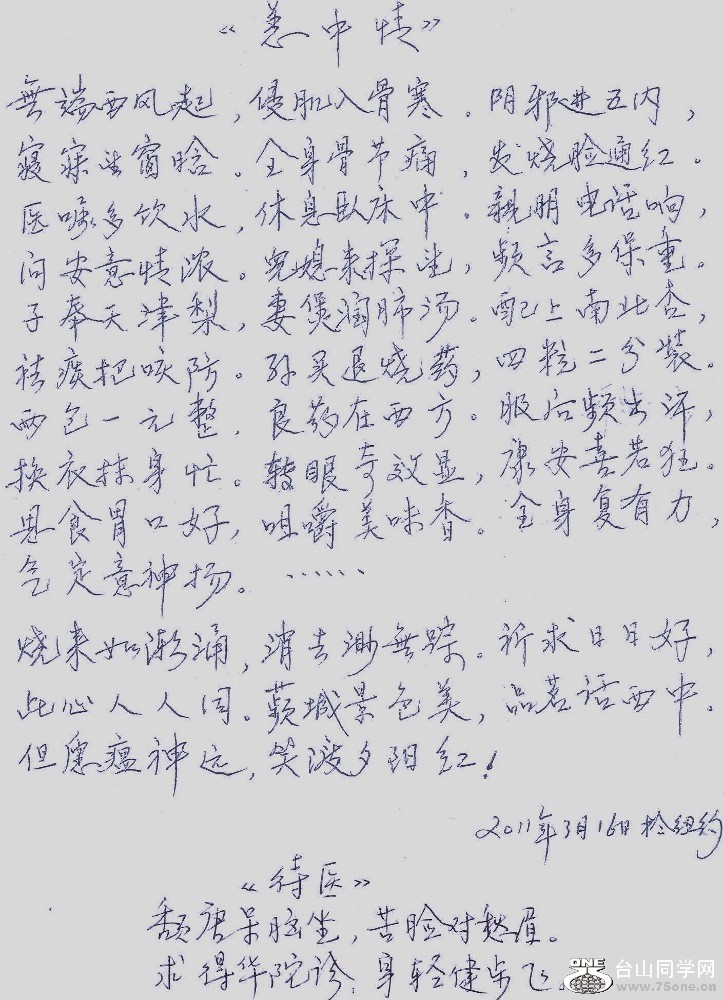 《患中情》
無端西风起，侵肌入骨寒。阴邪进五内，
寝寐坐窗晗。全身骨节痛，发烧脸通红。
医嘱多饮水，休息臥床中。親朋电话响，
问安意情浓。兒媳来探坐，频言多保重。
子奉天津梨，妻煲润肺汤。配上南北杏，
祛痰把咳防。孙买退烧药，四粒二分装。
两包一元整，良药在西方。服后频出汗，
换衣抹身忙。转眼奇效显，康安喜若狂。
思食胃口好，咀嚼美味香。全身复有力，
气定意神扬。……
烧来如潮涌，消去渺無踪。祈求日日好，
此心人人同。蘋城景色美，品茗话西中。
但愿瘟神远，笑渡夕阳红！
2011年3月16日於纽约
《待医》
颓唐呆脑坐，苦脸对愁眉。
求得华陀诊，身轻健步飞。
ONE
台山同学网
www.75one.cn